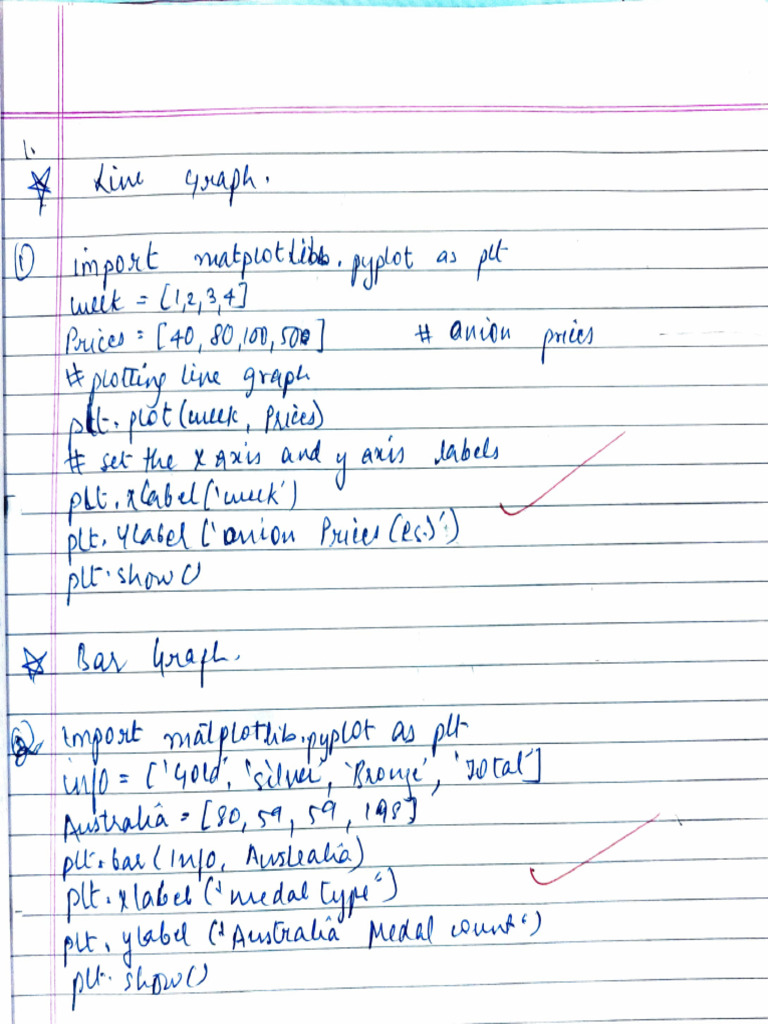 1.
☆ Line Graph.
① import matplotlib.pyplot as plt
week = [1,2,3,4]
Prices = [40, 80, 100, 500] # anion prices
# plotting line graph
plt.plot(week, Prices)
# set the x axis and y axis labels
plt.xlabel('week')
plt.ylabel('anion Prices (Rs.)')
plt.show()
☆ Bar Graph.
② import matplotlib.pyplot as plt
info = ['Gold', 'Silver', 'Bronze', 'Total']
Australia = [80, 59, 59, 198]
plt.bar(info, Australia)
plt.xlabel("medal type")
plt.ylabel("Australia Medal count")
plt.show()